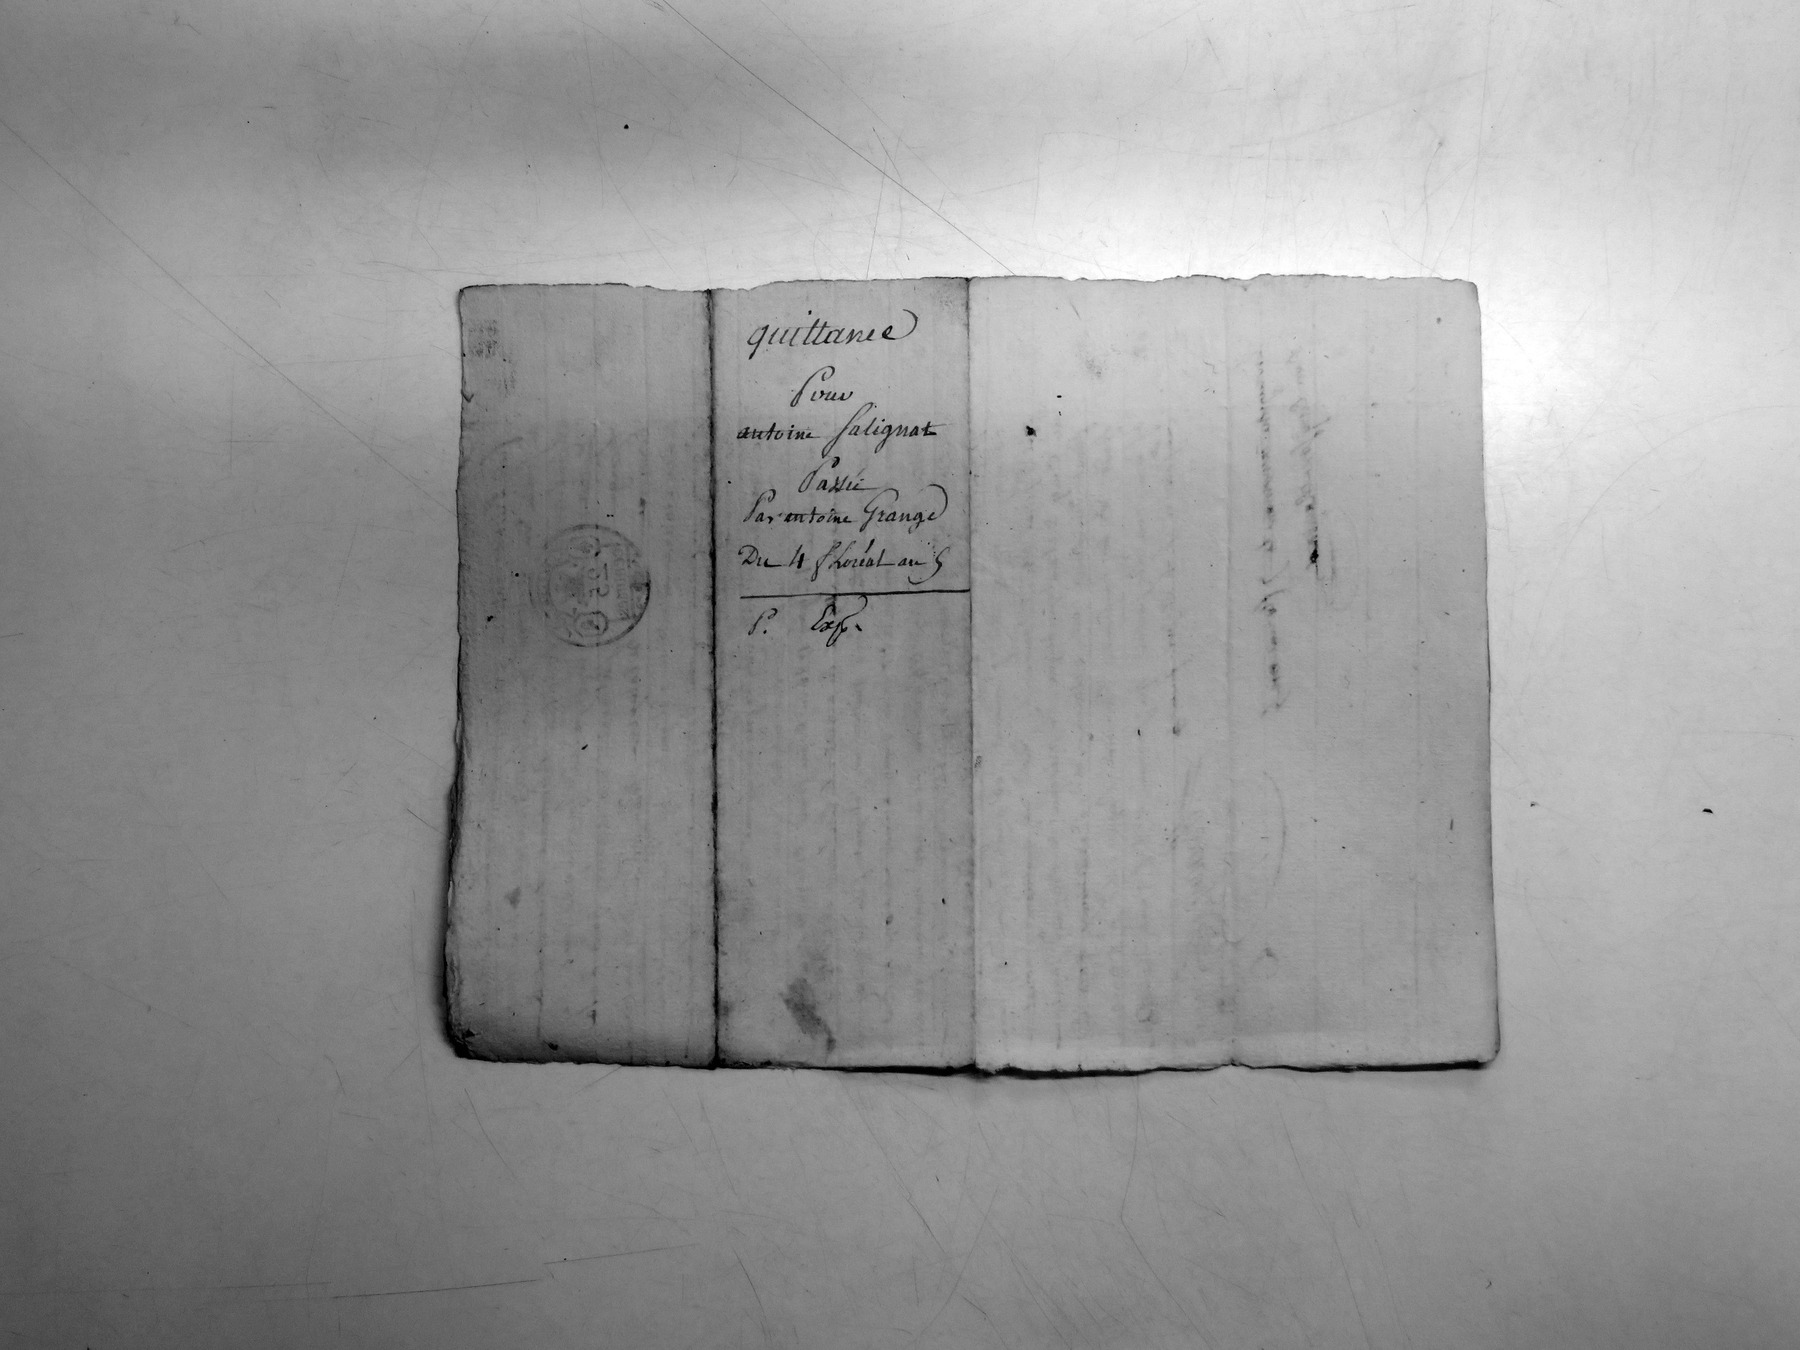 quittance
Pour
antoine Salignat
Passée
Par antoine Grange
Du 4 floréal an 5
P. Exp.